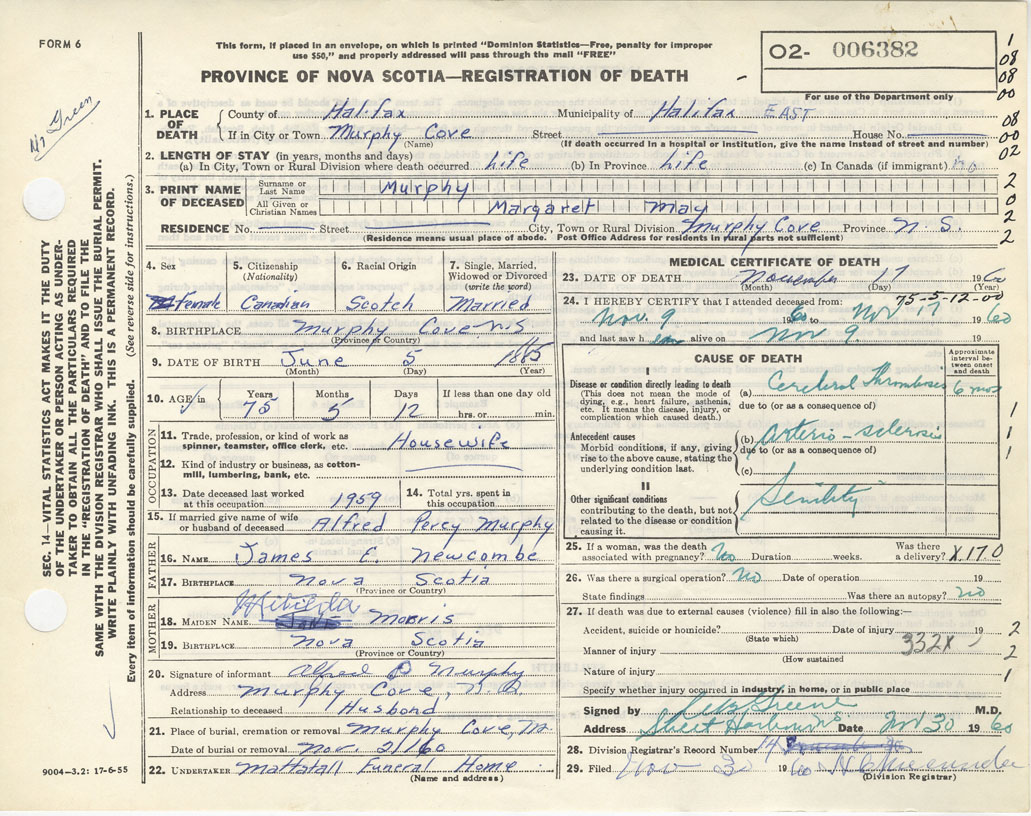 FORM 6
This form, if placed in an envelope, on which is printed "Dominion Statistics—Free, penalty for improper
use $50," and properly addressed will pass through the mail "FREE"
O2- 006382
PROVINCE OF NOVA SCOTIA—REGISTRATION OF DEATH
For use of the Department only
1
08
08
00
08
00
02
2
0
2
2
Green
SEC. 14—VITAL STATISTICS ACT MAKES IT THE DUTY
OF THE UNDERTAKER OR PERSON ACTING AS UNDER-
TAKER TO OBTAIN ALL THE PARTICULARS REQUIRED
IN THE "REGISTRATION OF DEATH" AND TO FILE THE
SAME WITH THE DIVISION REGISTRAR WHO SHALL ISSUE THE BURIAL PERMIT.
WRITE PLAINLY WITH UNFADING INK. THIS IS A PERMANENT RECORD.
Every item of information should be carefully supplied. (See reverse side for instructions.)
1. PLACE OF DEATH
County of Halifax Municipality of Halifax EAST
If in City or Town Murphy Cove Street House No.
(Name) (If death occurred in a hospital or institution, give the name instead of street and number)
2. LENGTH OF STAY (in years, months and days)
(a) In City, Town or Rural Division where death occurred life (b) In Province life (c) In Canada (if immigrant) no
3. PRINT NAME OF DECEASED
Surname or Last Name Murphy
All Given or Christian Names Margaret May
RESIDENCE No. Street City, Town or Rural Division Murphy Cove Province N.S.
(Residence means usual place of abode. Post Office Address for residents in rural parts not sufficient)
4. Sex 5. Citizenship (Nationality) 6. Racial Origin 7. Single, Married, Widowed or Divorced (write the word)
Female Canadian Scotch Married
8. BIRTHPLACE Murphy Cove N.S
(Province or Country)
9. DATE OF BIRTH June 5 1885
(Month) (Day) (Year)
10. AGE in Years Months Days If less than one day old
75 5 12 hrs. or min.
OCCUPATION
11. Trade, profession, or kind of work as
spinner, teamster, office clerk, etc. Housewife
12. Kind of industry or business, as cotton-
mill, lumbering, bank, etc.
13. Date deceased last worked
at this occupation 1959
14. Total yrs. spent in
this occupation
15. If married give name of wife
or husband of deceased Alfred Percy Murphy
FATHER
16. NAME James E. Newcombe
17. BIRTHPLACE Nova Scotia
(Province or Country)
MOTHER
18. MAIDEN NAME Matilda Morris
19. BIRTHPLACE Nova Scotia
(Province or Country)
20. Signature of informant Alfred P Murphy
Address Murphy Cove, N.S.
Relationship to deceased Husbond
21. Place of burial, cremation or removal Murphy Cove, N.
Date of burial or removal Nov. 21/60
22. UNDERTAKER Mattatall Funeral Home
(Name and address)
9004-3.2: 17-6-55
MEDICAL CERTIFICATE OF DEATH
23. DATE OF DEATH November 17 1960
(Month) (Day) (Year)
75-5-12-00
24. I HEREBY CERTIFY that I attended deceased from:
Nov. 9 1960 to Nov 17 1960
and last saw h er alive on Nov 9. 19
CAUSE OF DEATH
Approximate interval between onset and death
I
Disease or condition directly leading to death
(This does not mean the mode of
dying, e.g., heart failure, asthenia,
etc. It means the disease, injury, or
complication which caused death.)
(a) Cerebral Thrombosis 6 mos
due to (or as a consequence of)
Antecedent causes
Morbid conditions, if any, giving
rise to the above cause, stating the
underlying condition last.
(b) Arterio-sclerosis
due to (or as a consequence of)
(c)
1
1
1
II
Other significant conditions
contributing to the death, but not
related to the disease or condition
causing it.
Senility
25. If a woman, was the death
associated with pregnancy? No Duration weeks. Was there
a delivery? X170
26. Was there a surgical operation? No Date of operation 19
State findings Was there an autopsy? no
27. If death was due to external causes (violence) fill in also the following:—
Accident, suicide or homicide? Date of injury 19
(State which)
Manner of injury 332X
(How sustained
Nature of injury
Specify whether injury occurred in industry, in home, or in public place
2
2
1
Signed by Greene M.D.
Address Sheet Harbour NS Date Nov 30 1960
28. Division Registrar's Record Number 14
29. Filed Nov 30 1960
(Division Registrar)